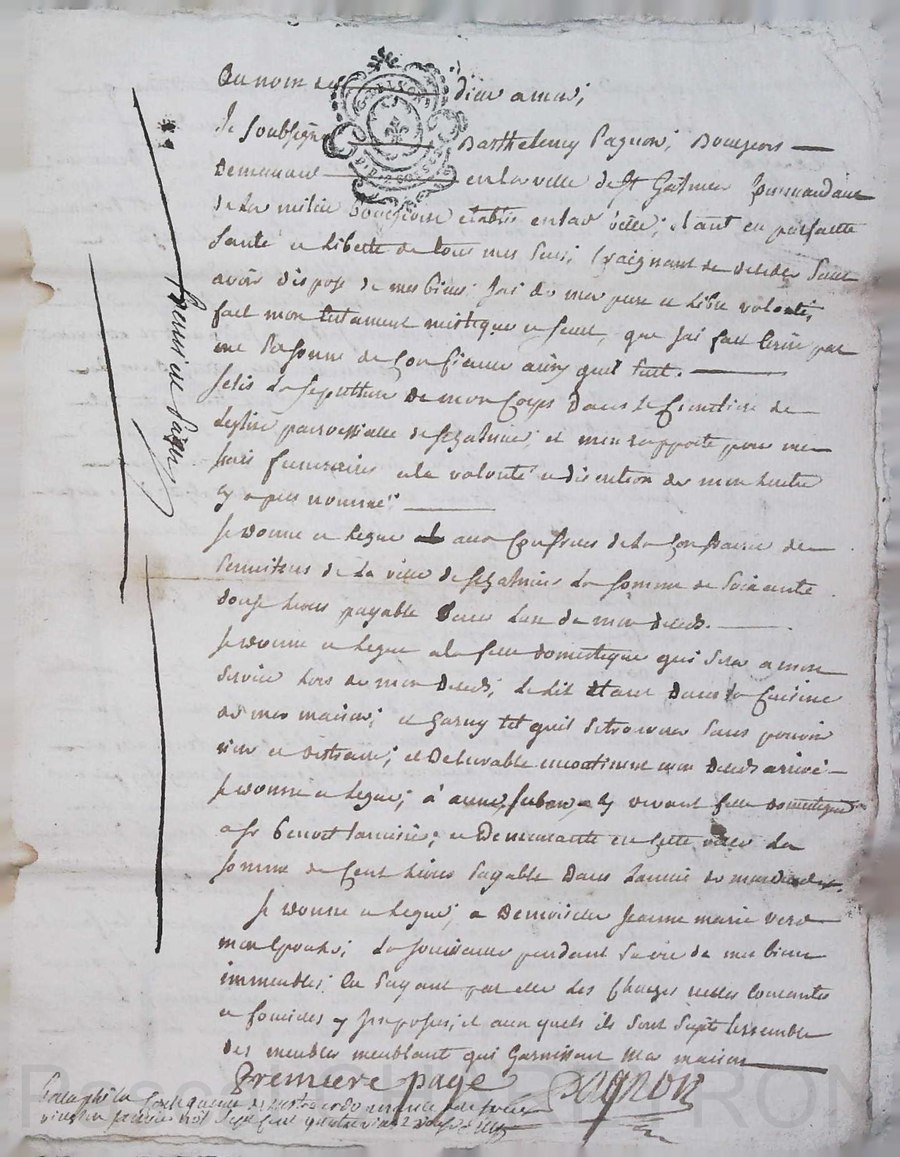 Au nom de dieu amen;
G. DE LYON
DIX 2 SOLS
Je Soubsigné Barthelemy Pagnon; Bourgeois
Demeurant en la ville de St Galmier
de la milice bourgeoise etablie en lad ville; etant en parfaitte
Santé et liberté de tous mes Sens; Craignant de deceder Sans
avoir dispose de mes biens; Jai de ma pure et libre volonté,
fait mon testament mistique et secret, que Jai fait Ecrire par
une Personne de Confiance ainsy quil Suit.
Jelis La Sepulture De mon Corps Dans Le Cimetiere de
Leglise paroissialle de St galmier; et men rapporte pour mes
frais funeraires a la volonté et discretion de mon heritier
Cy apres nommé;
Je donne et Legue aux Confreres de La Confrairie des
Penitens de La ville de St galmier La Somme de Soixante
douze Livres payable Dans Lan de mon Deceds.
Je donne et Legue a la fille domestique qui Sera a mon
Service Lors de mon Deceds; Le Lit Etant Dans La Cuisine
de mes maison; et Garny tel quil Se trouvera Sans pouvoir
rien en distraire; et Delivrable incontinent mon Deceds arrivé
Je donne et Legue; à anne, vivant fille domestique
a Sr Benoit; et Demeurante en Cette ville La
Somme de Cent Livres Payable Dans Lannée de mon deceds.
Je donne et Legue; a Demoiselle Jeanne marie
mon Epouse; La Jouissance pendant Sa vie de mes biens
immeubles; En Payant par elle Les Charges reelles Courantes
et foncides y Imposées; et aux quels ils Sont Sujets Ensemble
des meubles meublant qui Garnissent Mes maison
Premiere page Pagnon
Pascal CHAMPRON